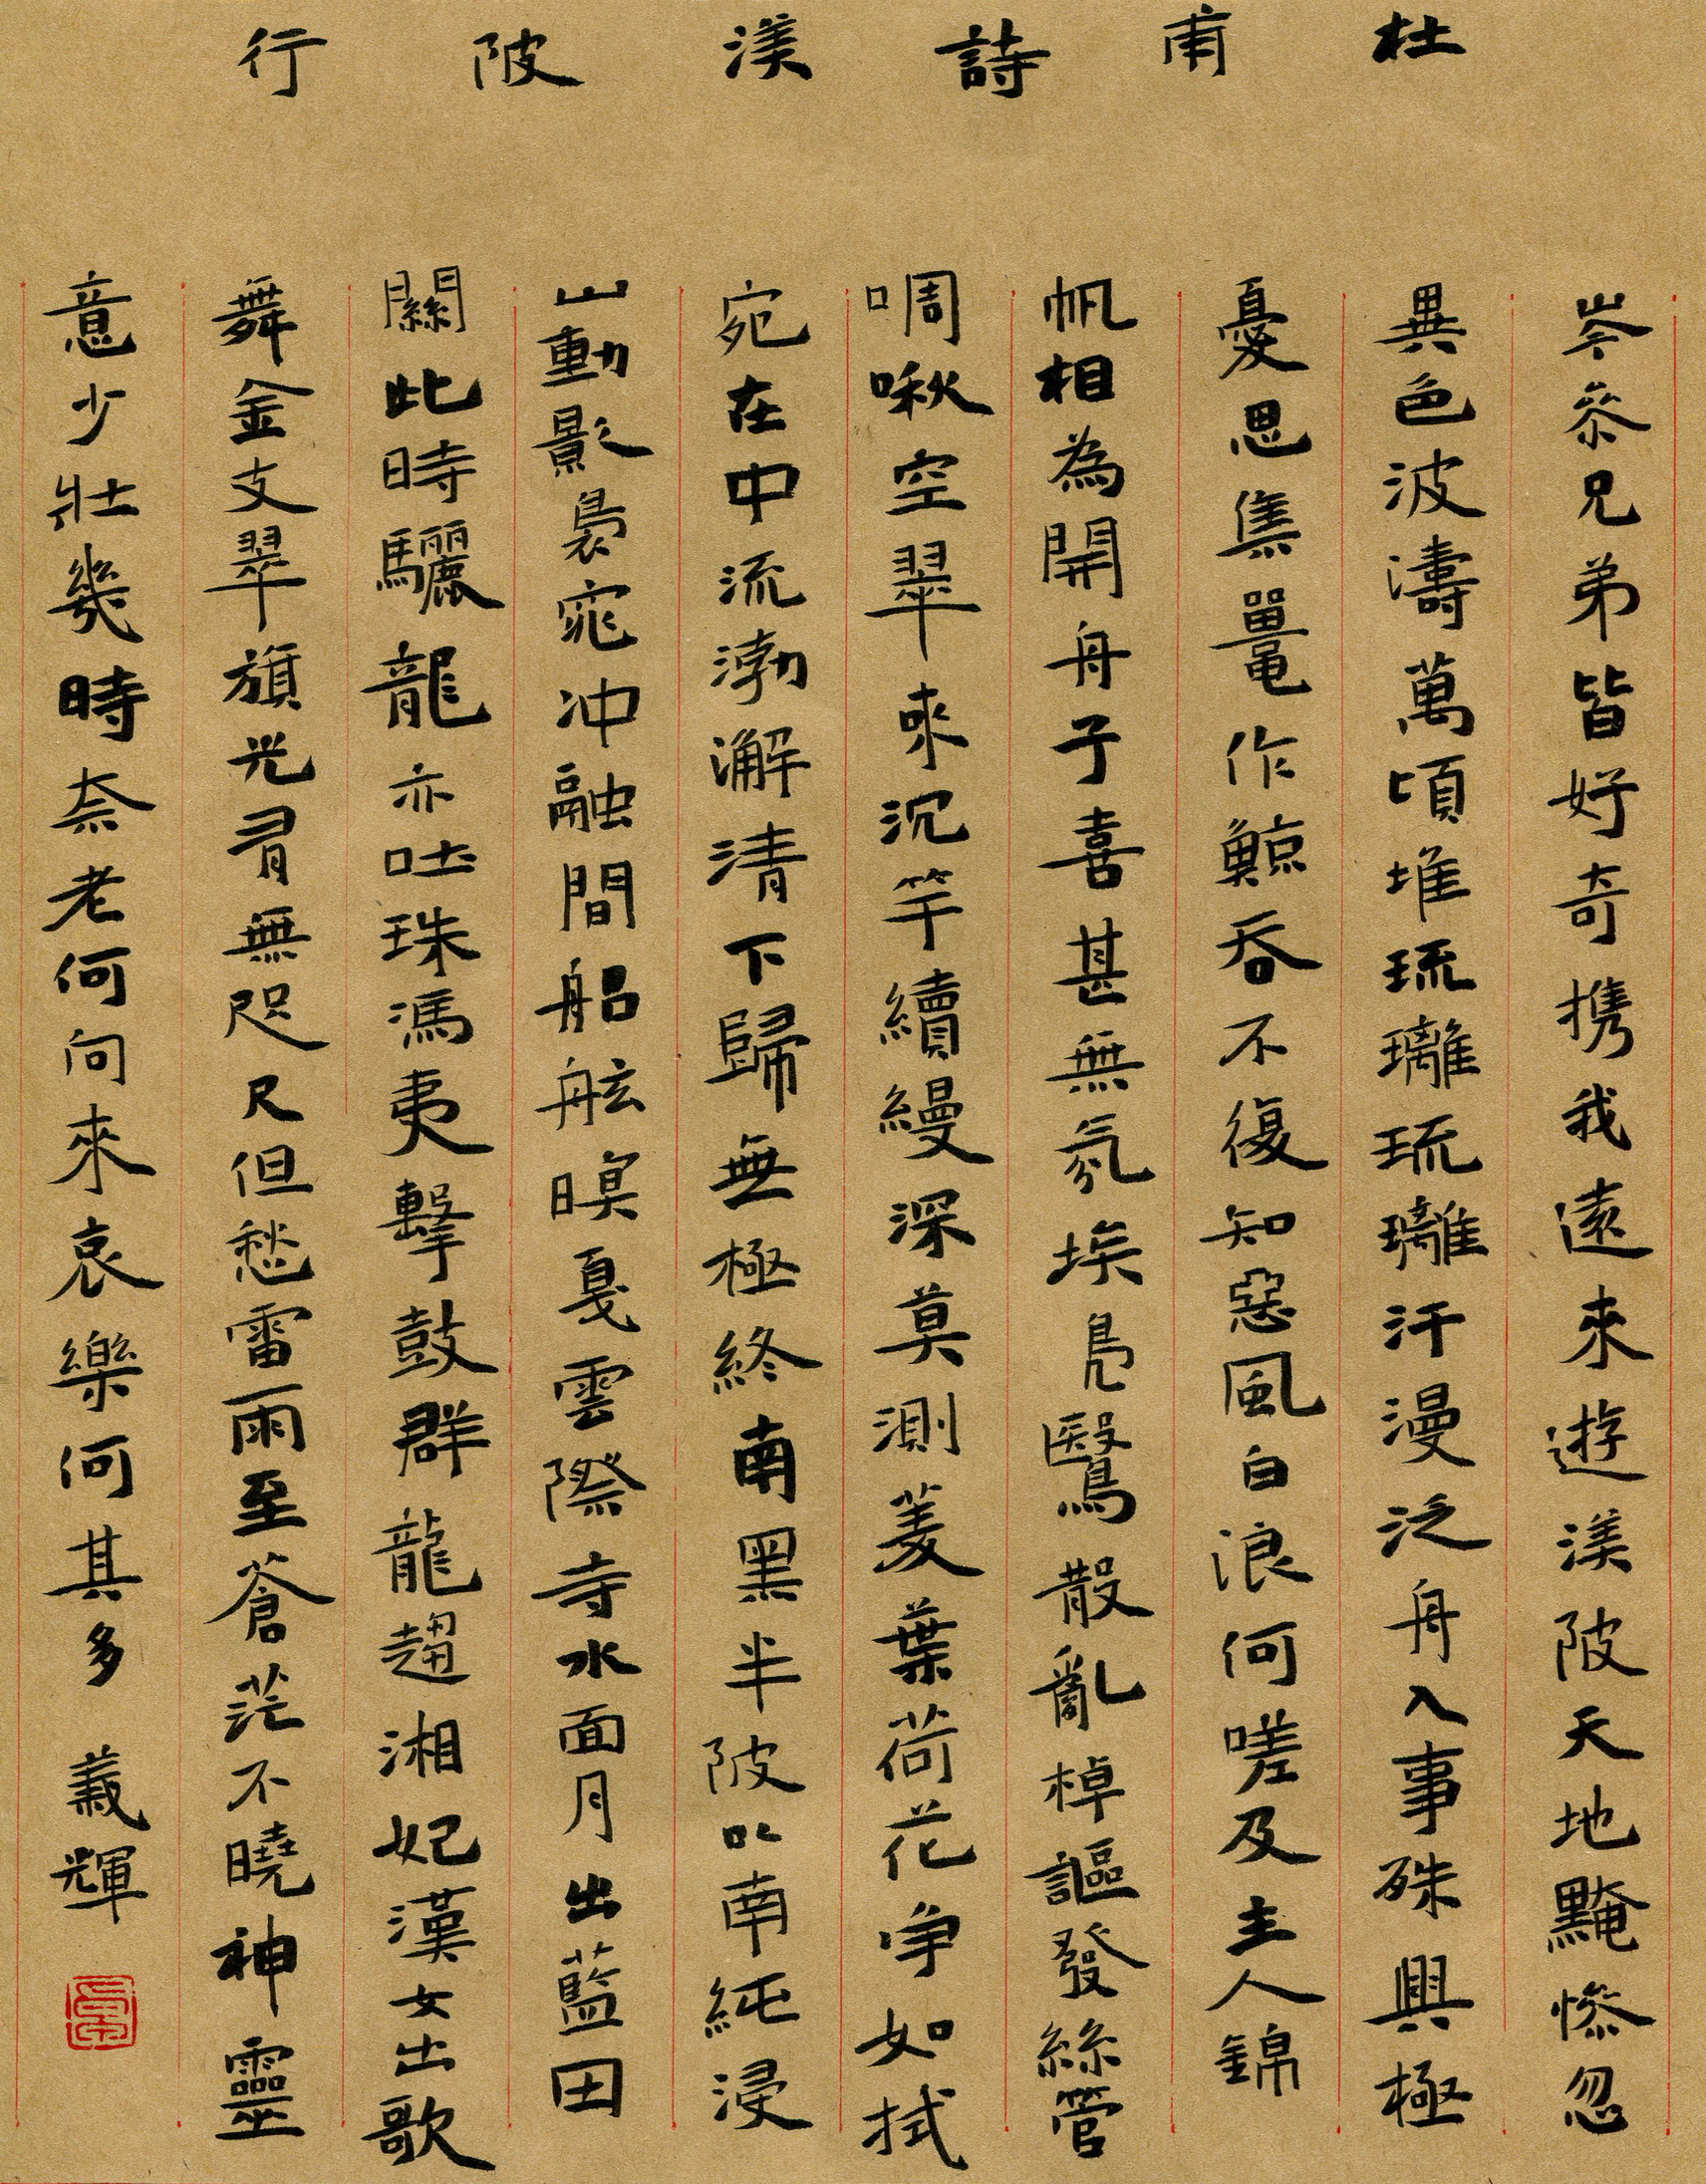 杜甫詩渼陂行
岑參兄弟皆好奇携我遠來遊渼陂天地黤慘忽
異色波濤萬頃堆琉璃琉璃汗漫泛舟入事殊興極
憂思集鼉作鯨吞不復知惡風白浪何嗟及主人錦
帆相為開舟子喜甚無氛埃鳧鷖散亂棹謳發絲管
啁啾空翠來沉竿續縵深莫測菱葉荷花争如拭
宛在中流渤澥清下歸無極終南黑半陂以南純浸
山動影裊窕冲融間船舷暝戛雲際寺水面月出藍田
關此時驪龍亦吐珠馮夷擊鼓群龍趨湘妃漢女出歌
舞金支翠旗光有無咫尺但愁雷雨至蒼茫不曉神靈
意少壯幾時奈老何向來哀樂何其多 義輝